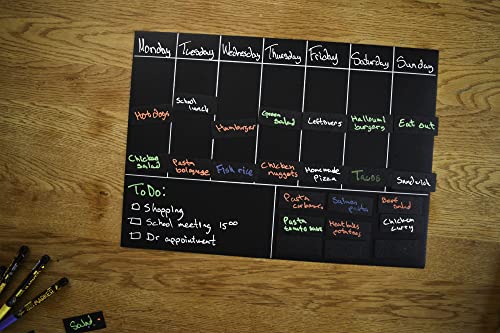 Monday Tuesday Wednesday Thursday Friday Saturday Sunday
Hot dogs
School
lunch
Hamburger
Green
salad
Leftovers
Halloumi
burgers
Eat out
Chicken
salad
Pasta
bolognese
Fish rice
Chicken
nuggets
Homemade
pizza
Tacos
Sandwich
To Do:
Shopping
School meeting 15 00
Dr appointment
Pasta
carbonara
Salmon
pasta
Beef
salad
Pasta
tomato sauce
Meatballs
potatoes
Chicken
curry
Salad